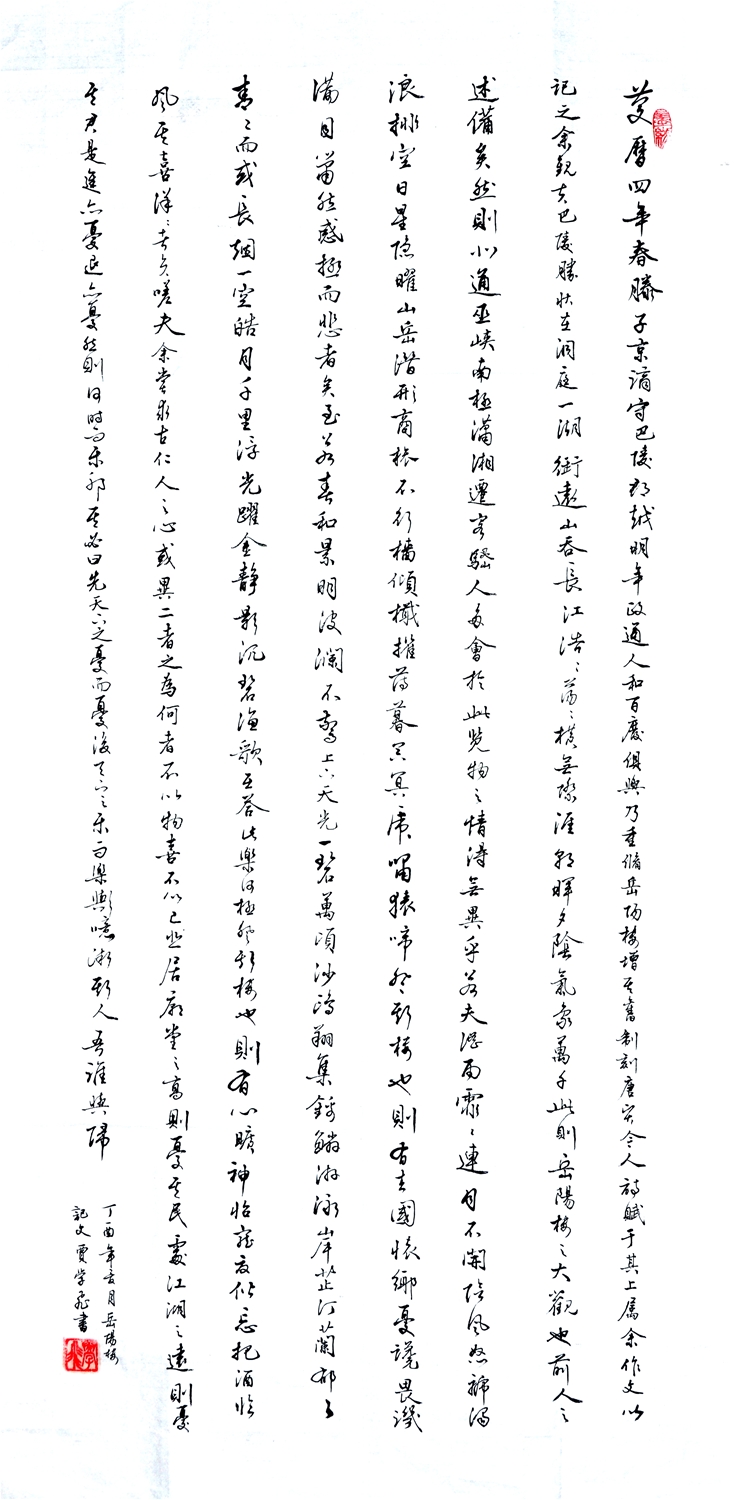 慶曆四年春滕子京謫守巴陵郡越明年政通人和百廢俱興乃重脩岳陽樓增其舊制刻唐賢今人詩賦于其上屬余作文以
記之余觀夫巴陵勝狀在洞庭一湖銜遠山吞長江浩〻蕩〻橫無際涯朝暉夕陰氣象萬千此則岳陽樓之大觀也前人之
述備矣然則北通巫峽南極瀟湘遷客騷人多會於此覽物之情得無異乎若夫淫雨霏〻連月不開陰風怒號濁
浪排空日星隱曜山岳潛形商旅不行檣傾檝摧薄暮冥冥虎嘯猿啼登斯樓也則有去國懷鄉憂讒畏譏
滿目蕭然感極而悲者矣至若春和景明波瀾不驚上下天光一碧萬頃沙鷗翔集錦鱗游泳岸芷汀蘭郁〻
青〻而或長煙一空皓月千里浮光躍金靜影沉碧漁歌互答此樂何極登斯樓也則有心曠神怡寵辱偕忘把酒臨
風其喜洋〻者矣嗟夫余嘗求古仁人之心或異二者之為何者不以物喜不以己悲居廟堂之高則憂其民處江湖之遠則憂
其君是進亦憂退亦憂然則何時而樂耶其必曰先天下之憂而憂後天下之樂而樂歟噫微斯人吾誰與歸
丁酉年玄月岳陽樓
記文賈學飛書